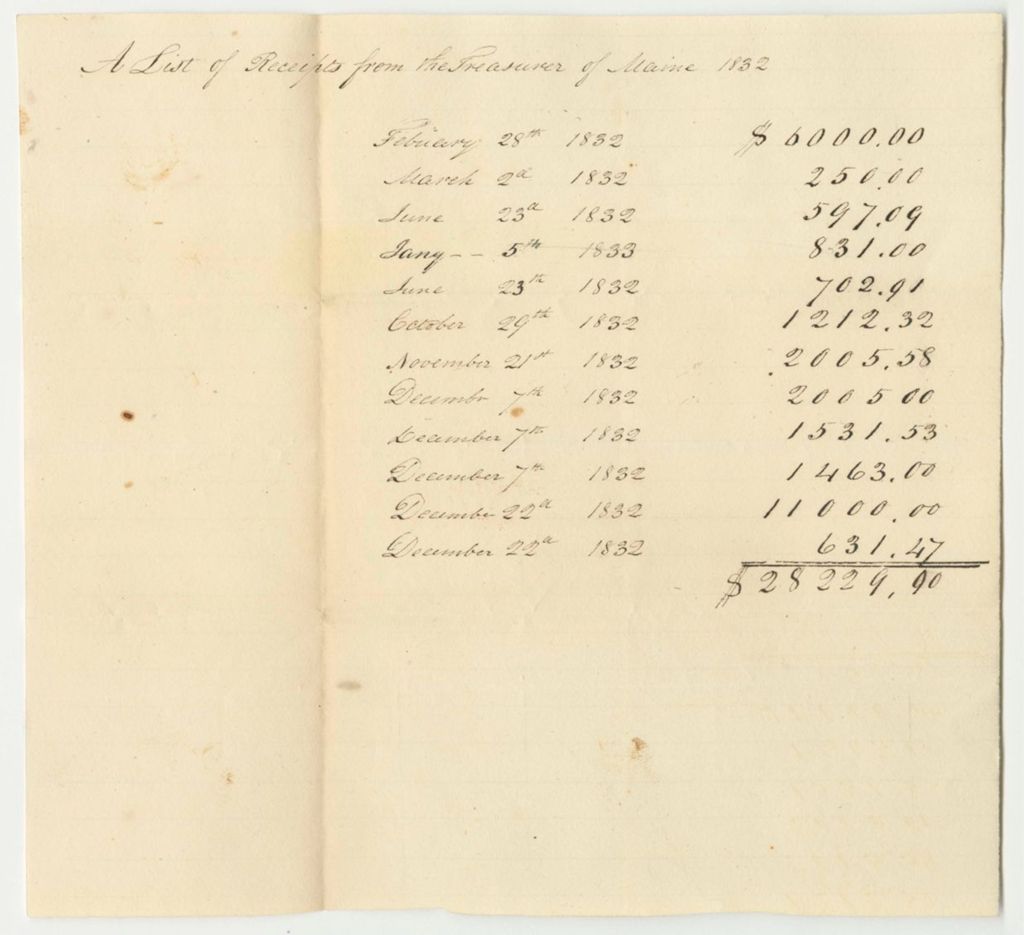 A List of Receipts from the Treasurer of Maine 1832
Febuary 28th 1832 $ 6000.00
March 2d 1832 250.00
June 23d 1832 597.09
Jany -- 5th 1833 831.00
June 23th 1832 702.91
October 29th 1832 1212.32
November 21st 1832 2005.58
Decembr 7th 1832 2005 00
December 7th 1832 1531.53
December 7th 1832 1463.00
Decembe 22d 1832 11000.00
December 22d 1832 631.47
$ 28229.90